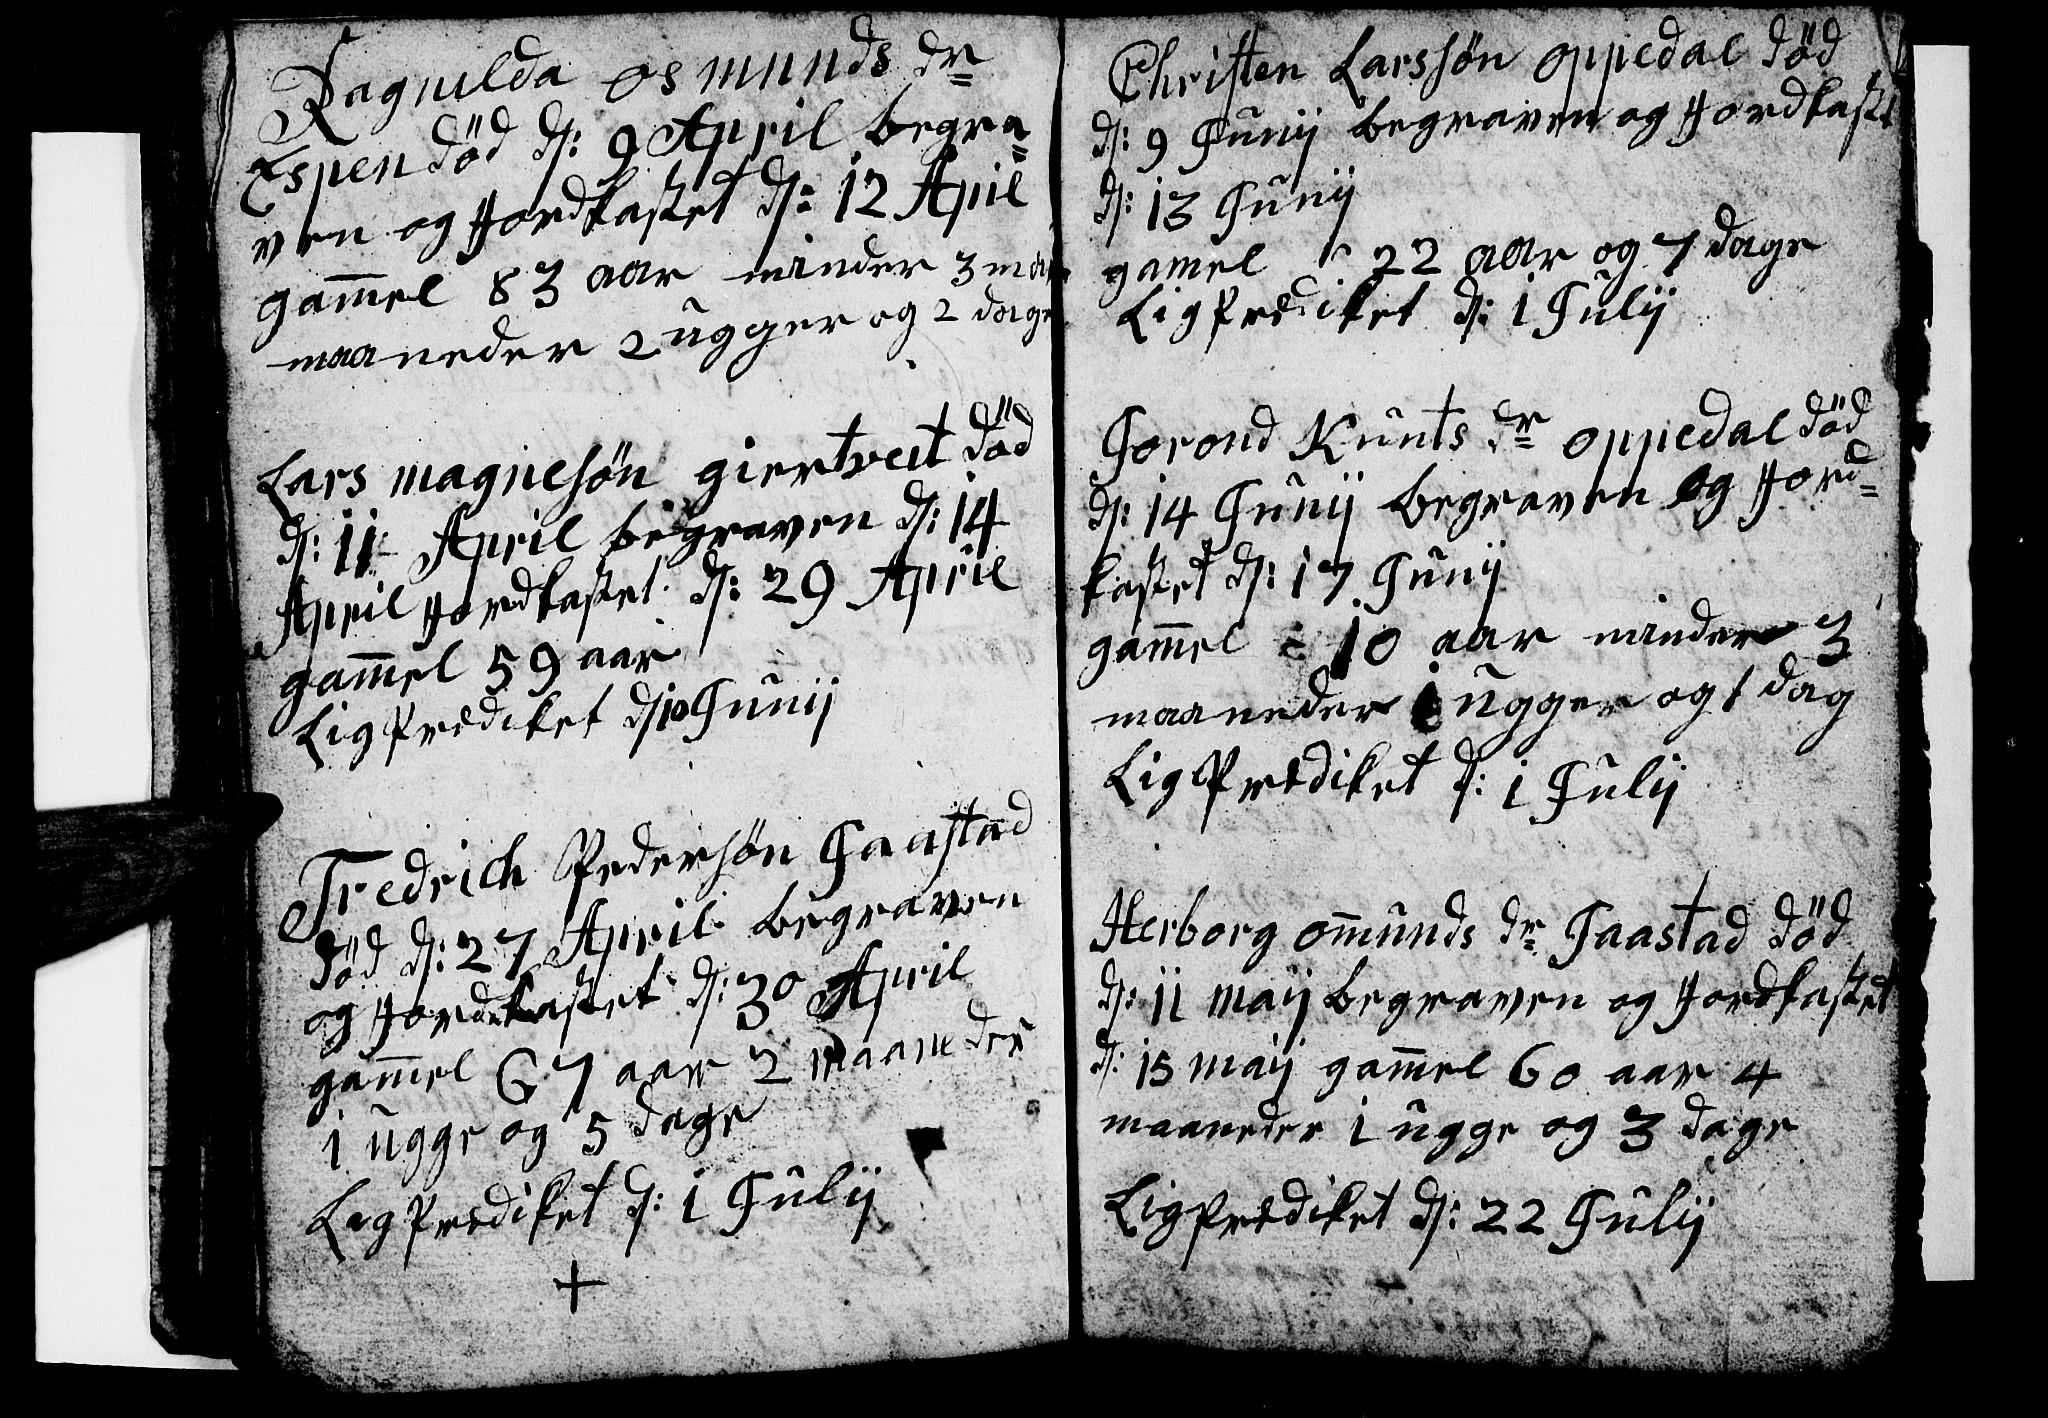 Ragnilda osmunds dr
Espen død d: 9 April begra=
ven og Jordkastet d: 12 April
gam̄el 83 aar minder 3
maaneder 2 ugger og 2 dage
Lars magnesøn giertveit død
d: 11 April begraven d: 14
April Jordkastet d: 29 April
gam̄el 59 aar
LigPrediket d: 10 Junij
Fredrich Pedersøn Jaastad
død d: 27 April begraven
og Jordkastet d: 30 April
gam̄el 67 aar 2 maaneder
1 ugge og 5 dage
LigPrediket d: 1 Julij
+
Christen Larssøn oppedal død
d: 9 Junij begraven og Jordkastet
d: 13 Junij
gamel 22 aar og 7 dage
LigPrediket d: 1 Julij
Jorond Kunts dr oppedal død
d: 14 Junij begraven og Jord=
kastet d: 17 Junij
gam̄el 10 aar minder 3
maaneder 1 ugger og 1 dag
LigPrediket d: 1 Julij
Herborg om̄unds dr Jaastad død
d: 11 maij begraven og Jordkastet
d: 15 maij gam̄el 60 aar 4
maaneder 1 ugge og 3 dage
LigPrediket d: 22 Julij